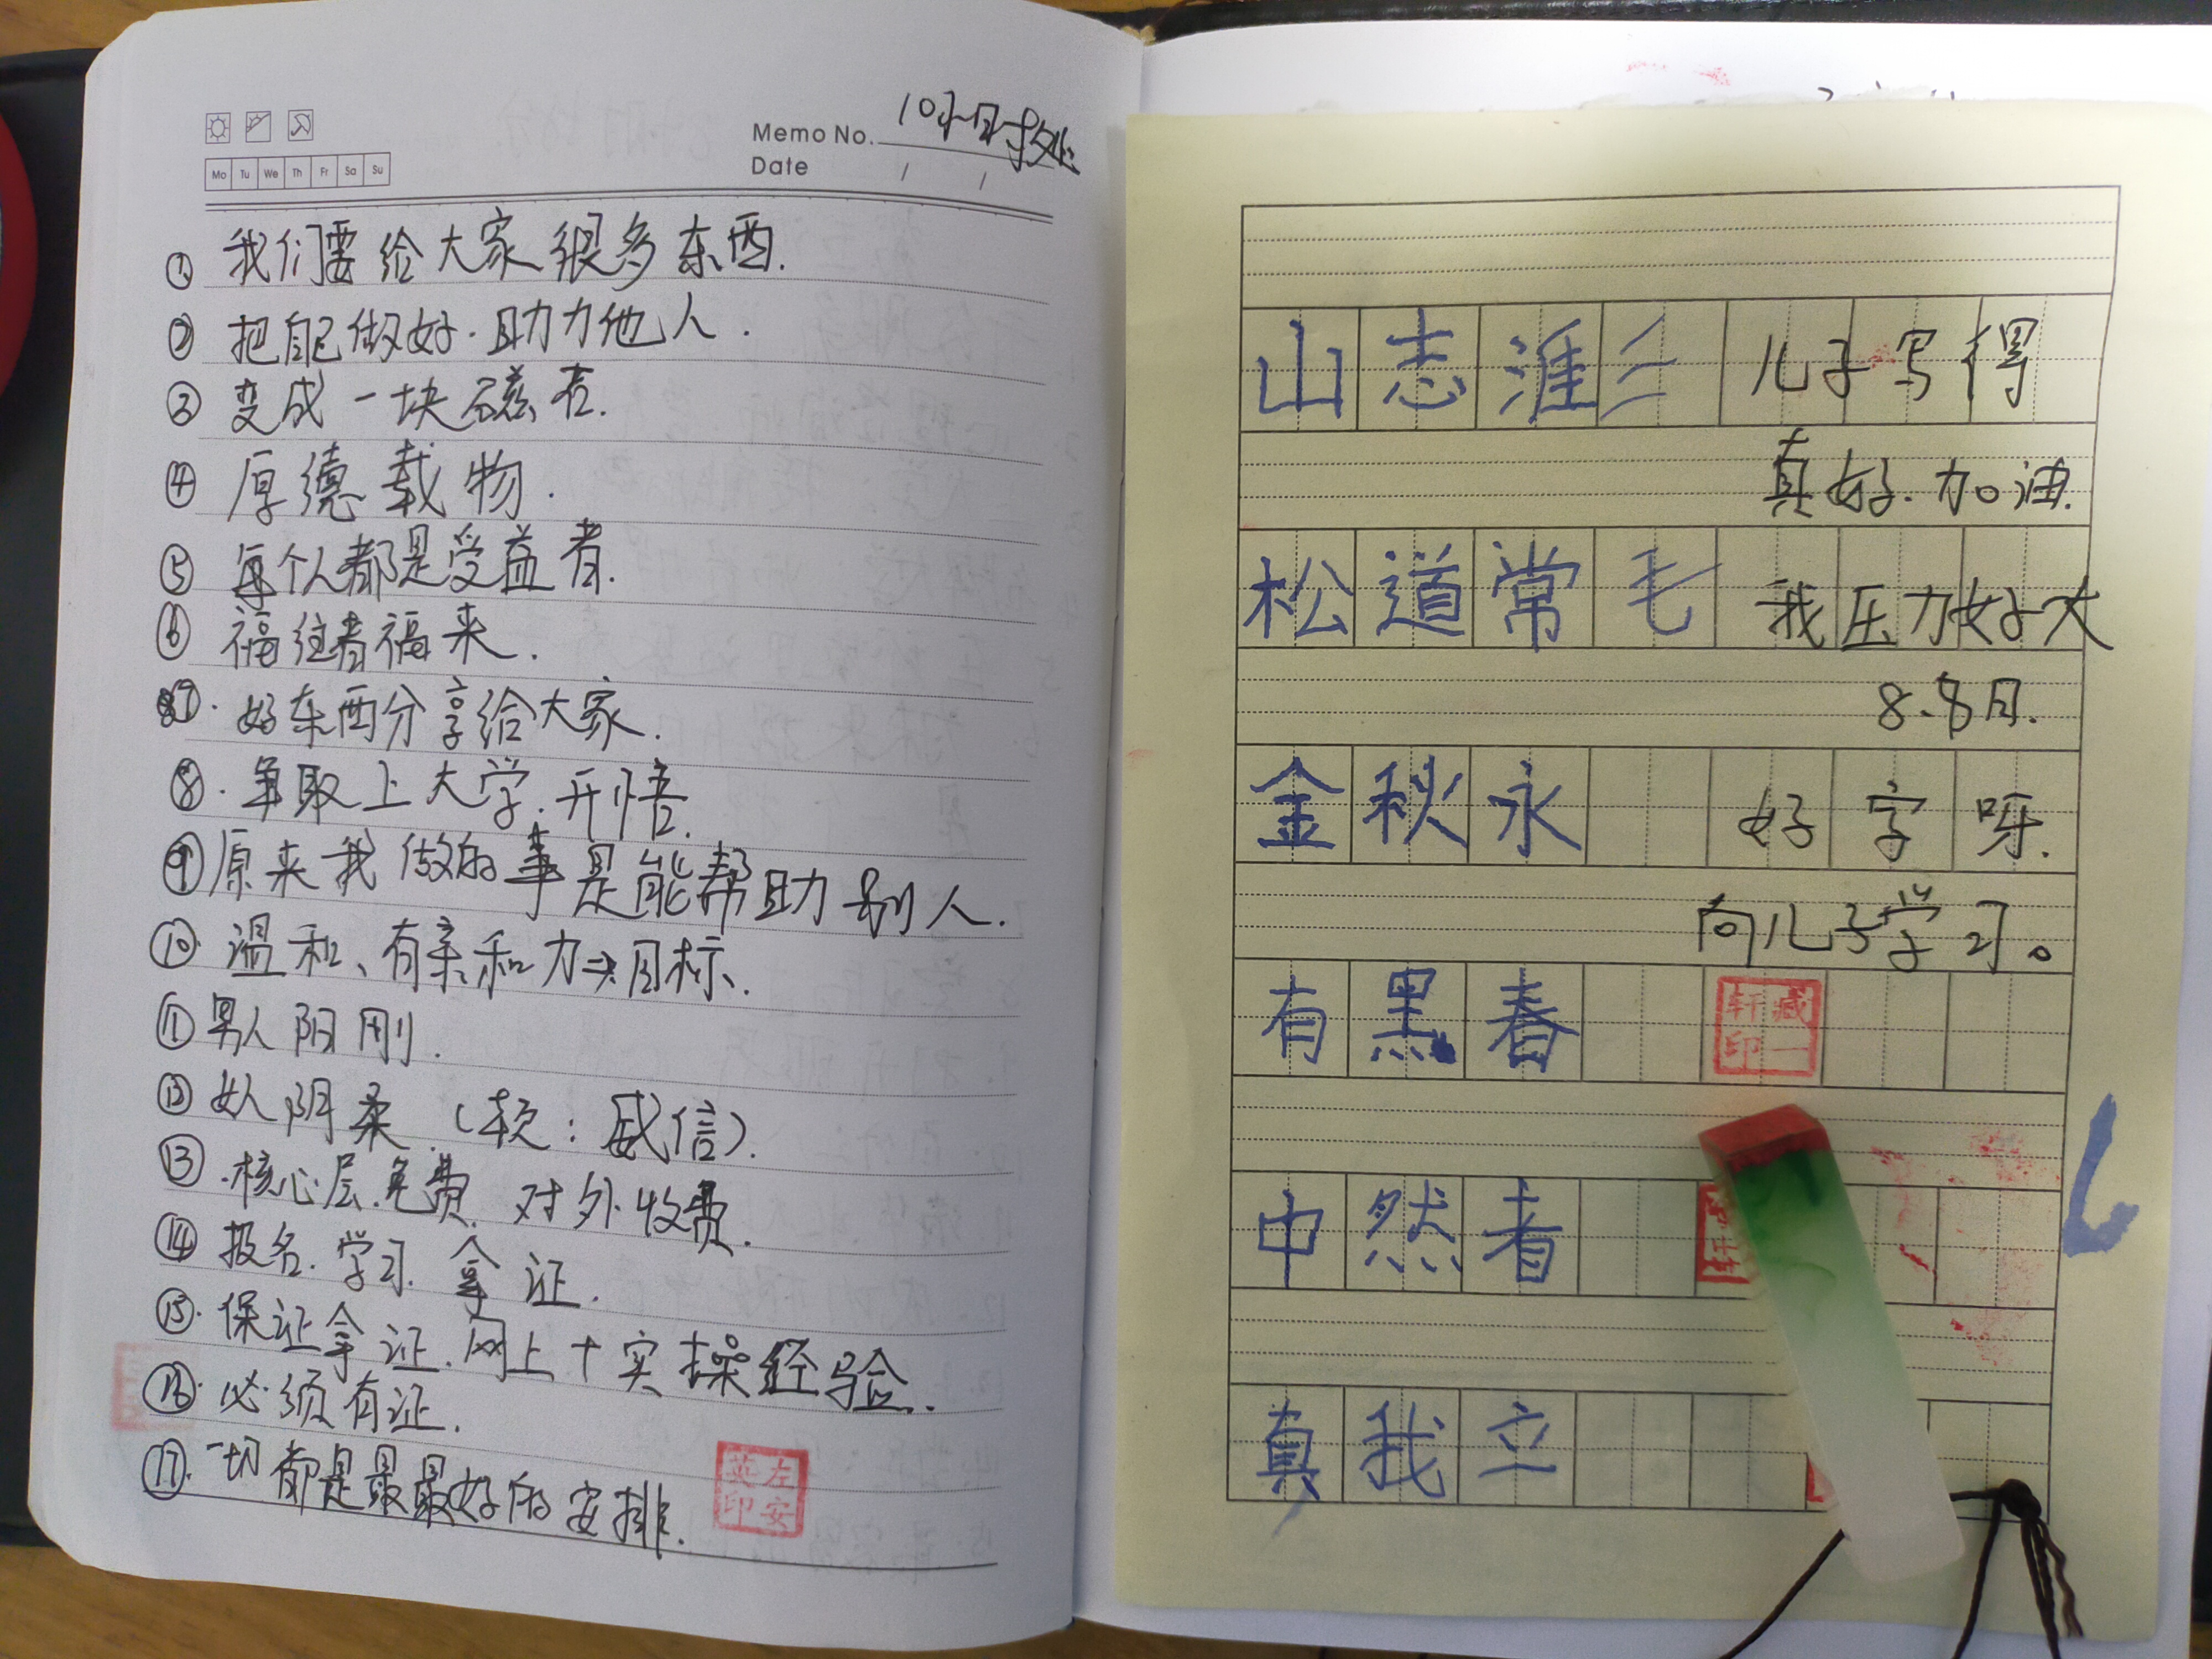 Memo No. 10小时处
Date / /
Mo Tu We Th Fr Sa Su
① 我们要给大家很多东西.
② 把自己做好.助力他人.
③ 变成一块磁石.
④ 厚德载物.
⑤ 每个人都是受益者.
⑥ 福往者福来.
⑦. 好东西分享给大家.
⑧. 争取上大学.开悟.
⑨ 原来我做的事是能帮助别人.
⑩. 温和、有亲和力→目标.
⑪ 男人阳刚.
⑫ 女人阴柔.(软:威信).
⑬.核心层.免费.对外收费.
⑭ 报名.学习.拿证.
⑮. 保证拿证.网上+实操经验.
⑯. 必须有证.
⑰. 一切都是最最好的安排.
左安英印
山志涯 儿子写得
真好.加油.
松道常毛 我压力好大
8.8月.
金秋永 好字呀.
向儿子学习。
有黑春
臧一轩印
中然者
真我立